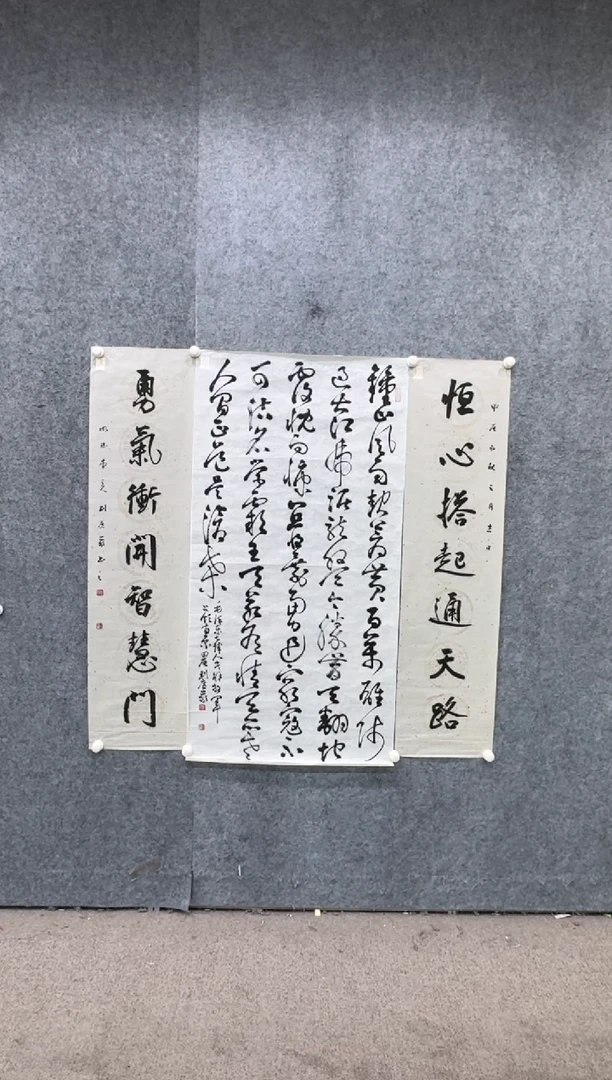 恒心搭起通天路
鍾山風雨起蒼黄百萬雄師
過大江虎踞龍盤今勝昔天翻地
覆慨而慷宜將剩勇追窮寇不
可沽名學霸王天若有情天亦老
人間正道是滄桑
毛澤東人民解放軍
占領南京
勇氣衝開智慧門